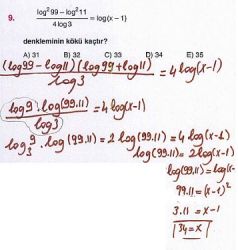 9. log²99 − log²11 / 4 log3 = log(x − 1)
denkleminin kökü kaçtır?
A) 31 B) 32 C) 33 D) 34 E) 35
(log99 − log11)(log99 + log11) / log3 = 4 log(x−1)
log9 · log(99.11) / log3 = 4 log(x−1)
log₃9 · log(99.11) = 2 log(99.11) = 4 log(x−1)
log(99.11) = 2 log(x−1)
log(99.11) = log(x−
99.11 = (x−1)²
3.11 = x−1
34 = x